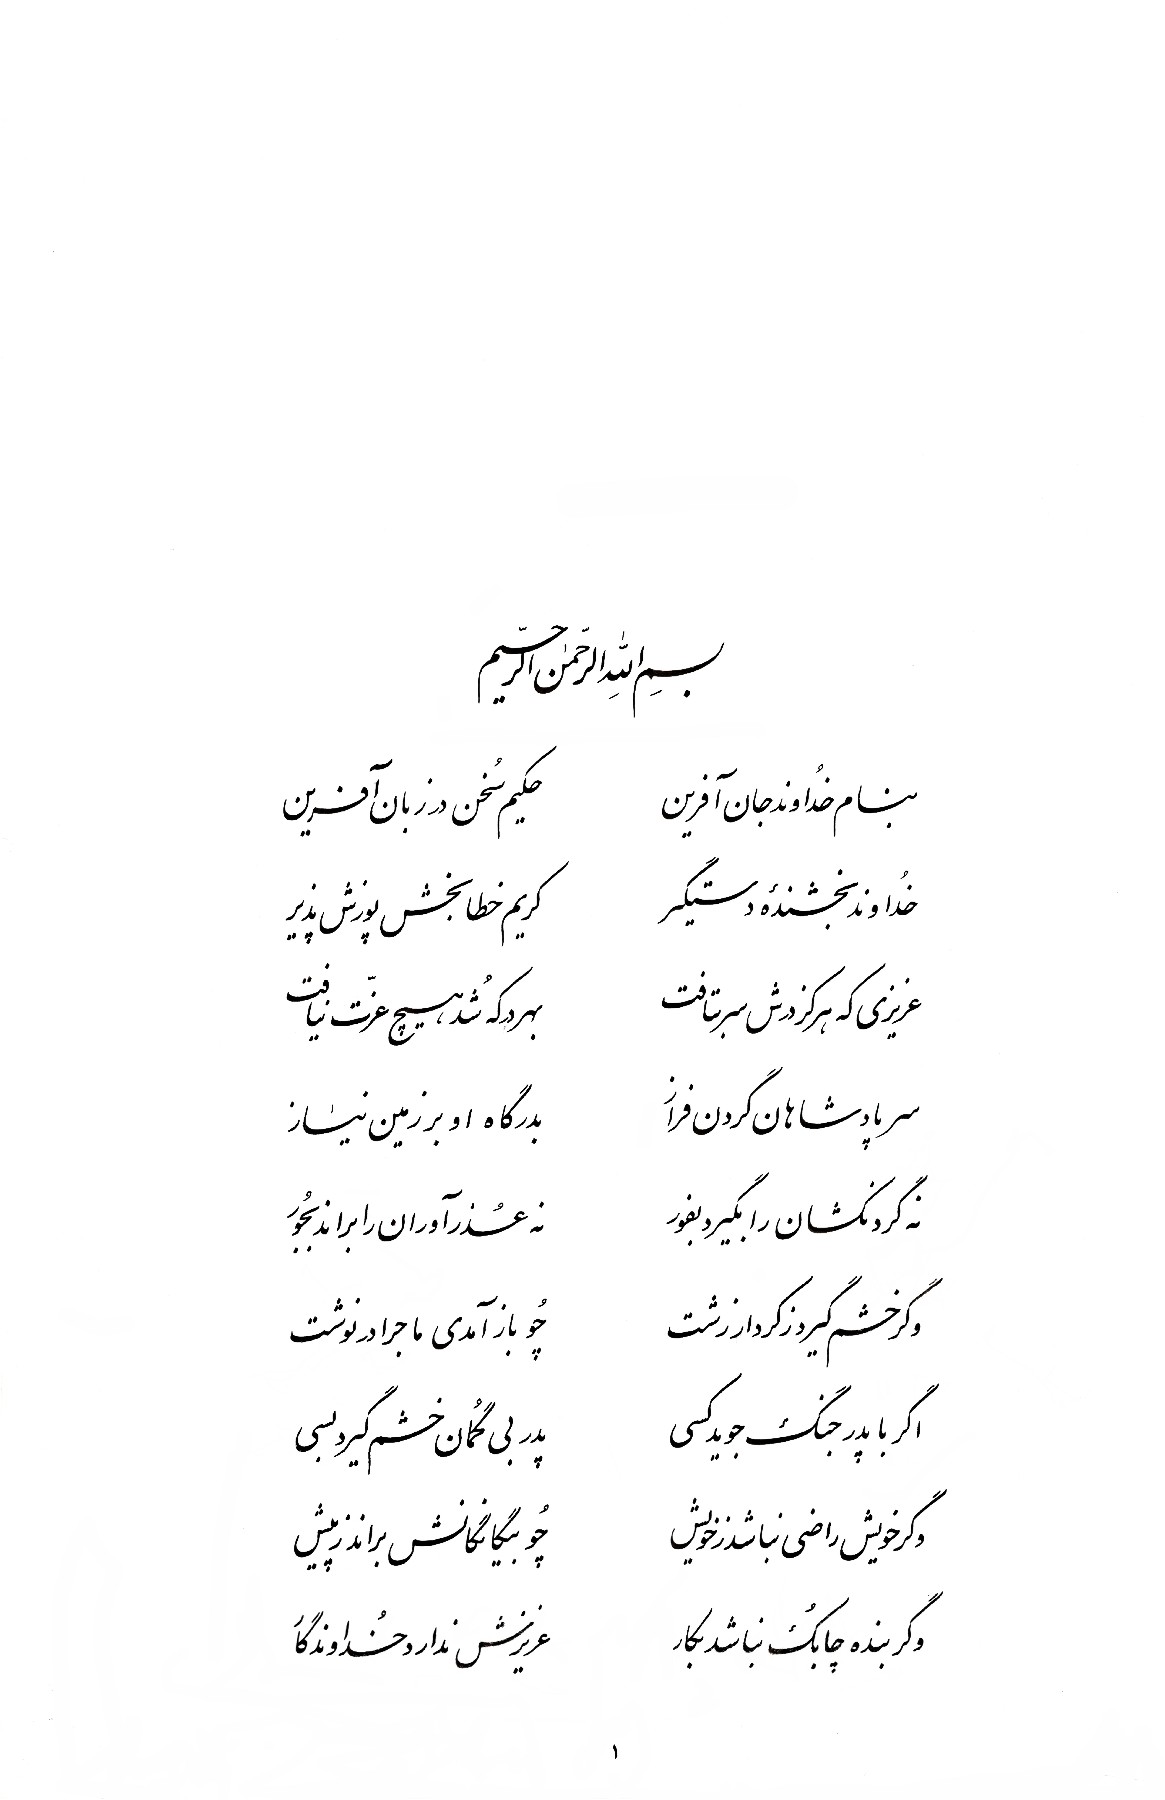 بسم الله الرّحمٰن الرّحیم
بنام خُداوند جان آفرین حکیم سُخن در زبان آفرین
خُداوند بخشندهٔ دستگیر کریم خطا بخش پوزش پذیر
عزیزی که هرکز درش سر بتافت بهر در که شُد هیچ عزّت نیافت
سر پادشاهان گردن فراز بدرگاه او بر زمین نیاز
نه گردنکشان را بگیرد بفور نه عُذر آوران را براند بجُور
وگر خشم گیرد ز کردار زشت چُو باز آمدی ماجرا در نوشت
اگر با پدر جنگ جوید کسی پدر بی گُمان خشم گیرد بسی
وگر خویش راضی نباشد ز خویش چُو بیگانگانش براند ز پیش
وگر بنده چابُک نباشد بکار عزیزش ندارد خُداوندگا
۱